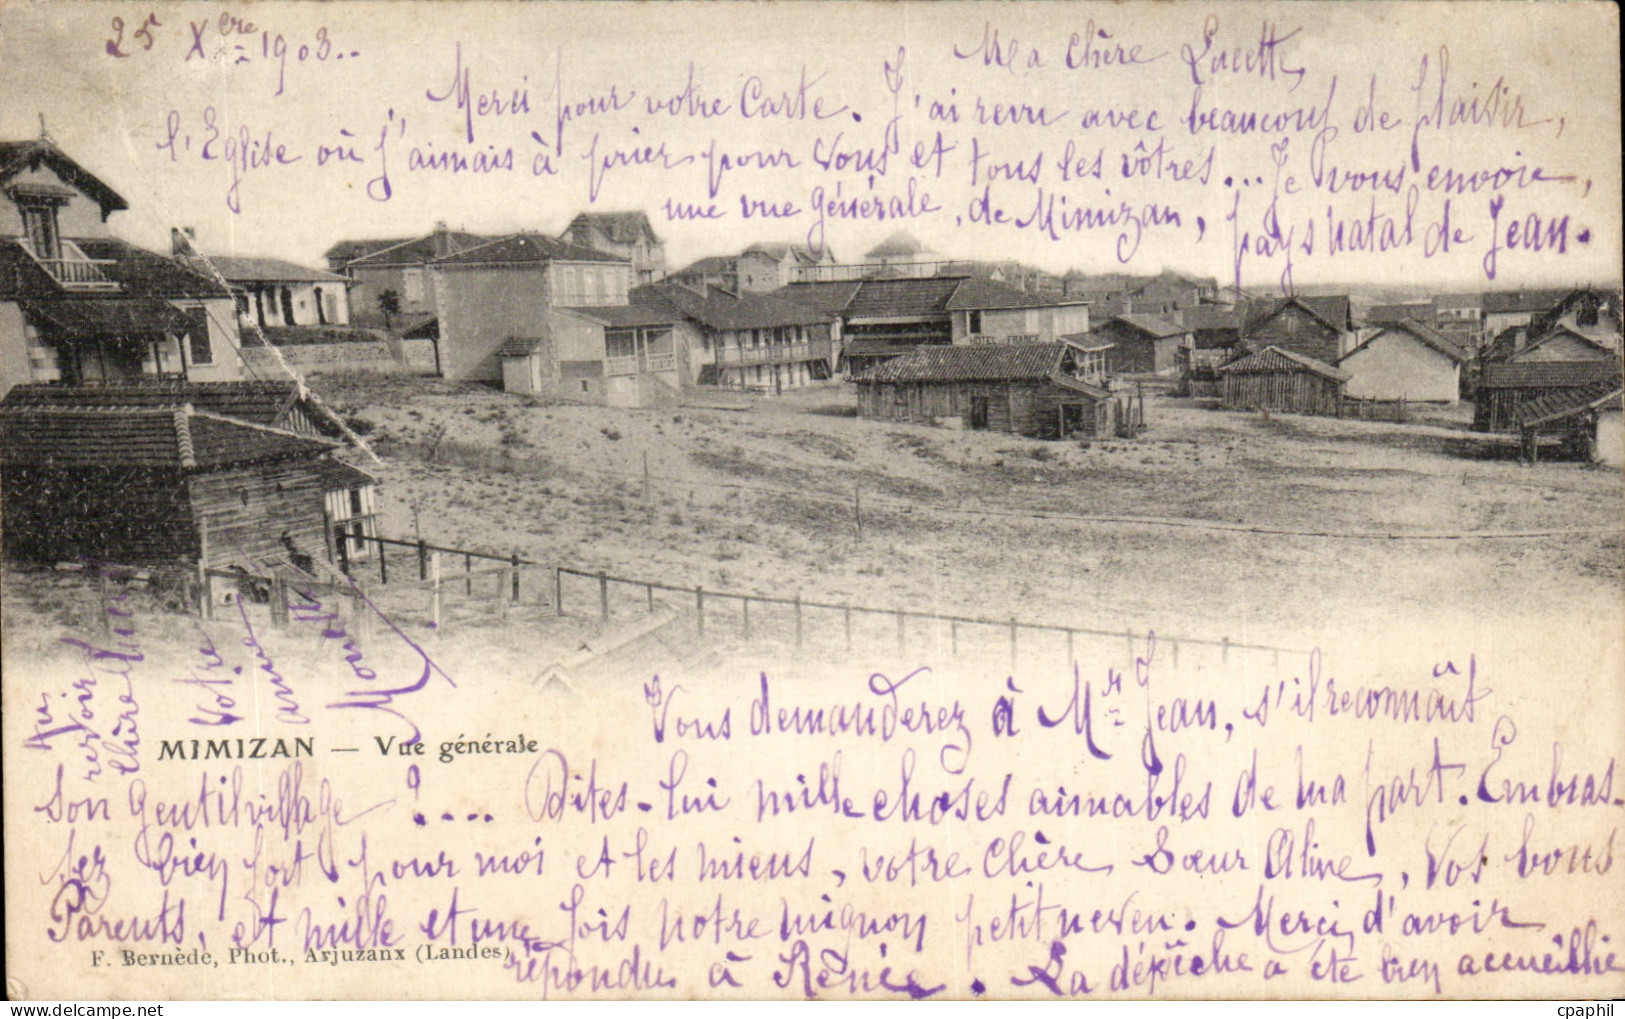 25 Xbre 1903..
Ma chère Lucette,
Merci pour votre Carte. J'ai revu avec beaucoup de plaisir,
l'Eglise où j'aimais à prier pour Vous et tous les vôtres... Je vous envoie,
une vue générale, de Mimizan, pays natal de Jean.
HOTEL FRANCE
Vous demanderez à Mr Jean, s'il reconnaît
MIMIZAN — Vue générale
son gentil village ?.... Dites-lui mille choses aimables de ma part. Embras-
sez bien fort, pour moi et les miens, votre chère Sœur Aline, Vos bons
Parents, et mille et une fois notre mignon petit neveu. Merci d'avoir
F. Bernède, Phot., Arjuzanx (Landes)
répondu à Rénée. La dépêche a été bien accueillie
Au
revoir
chère
Votre
amie